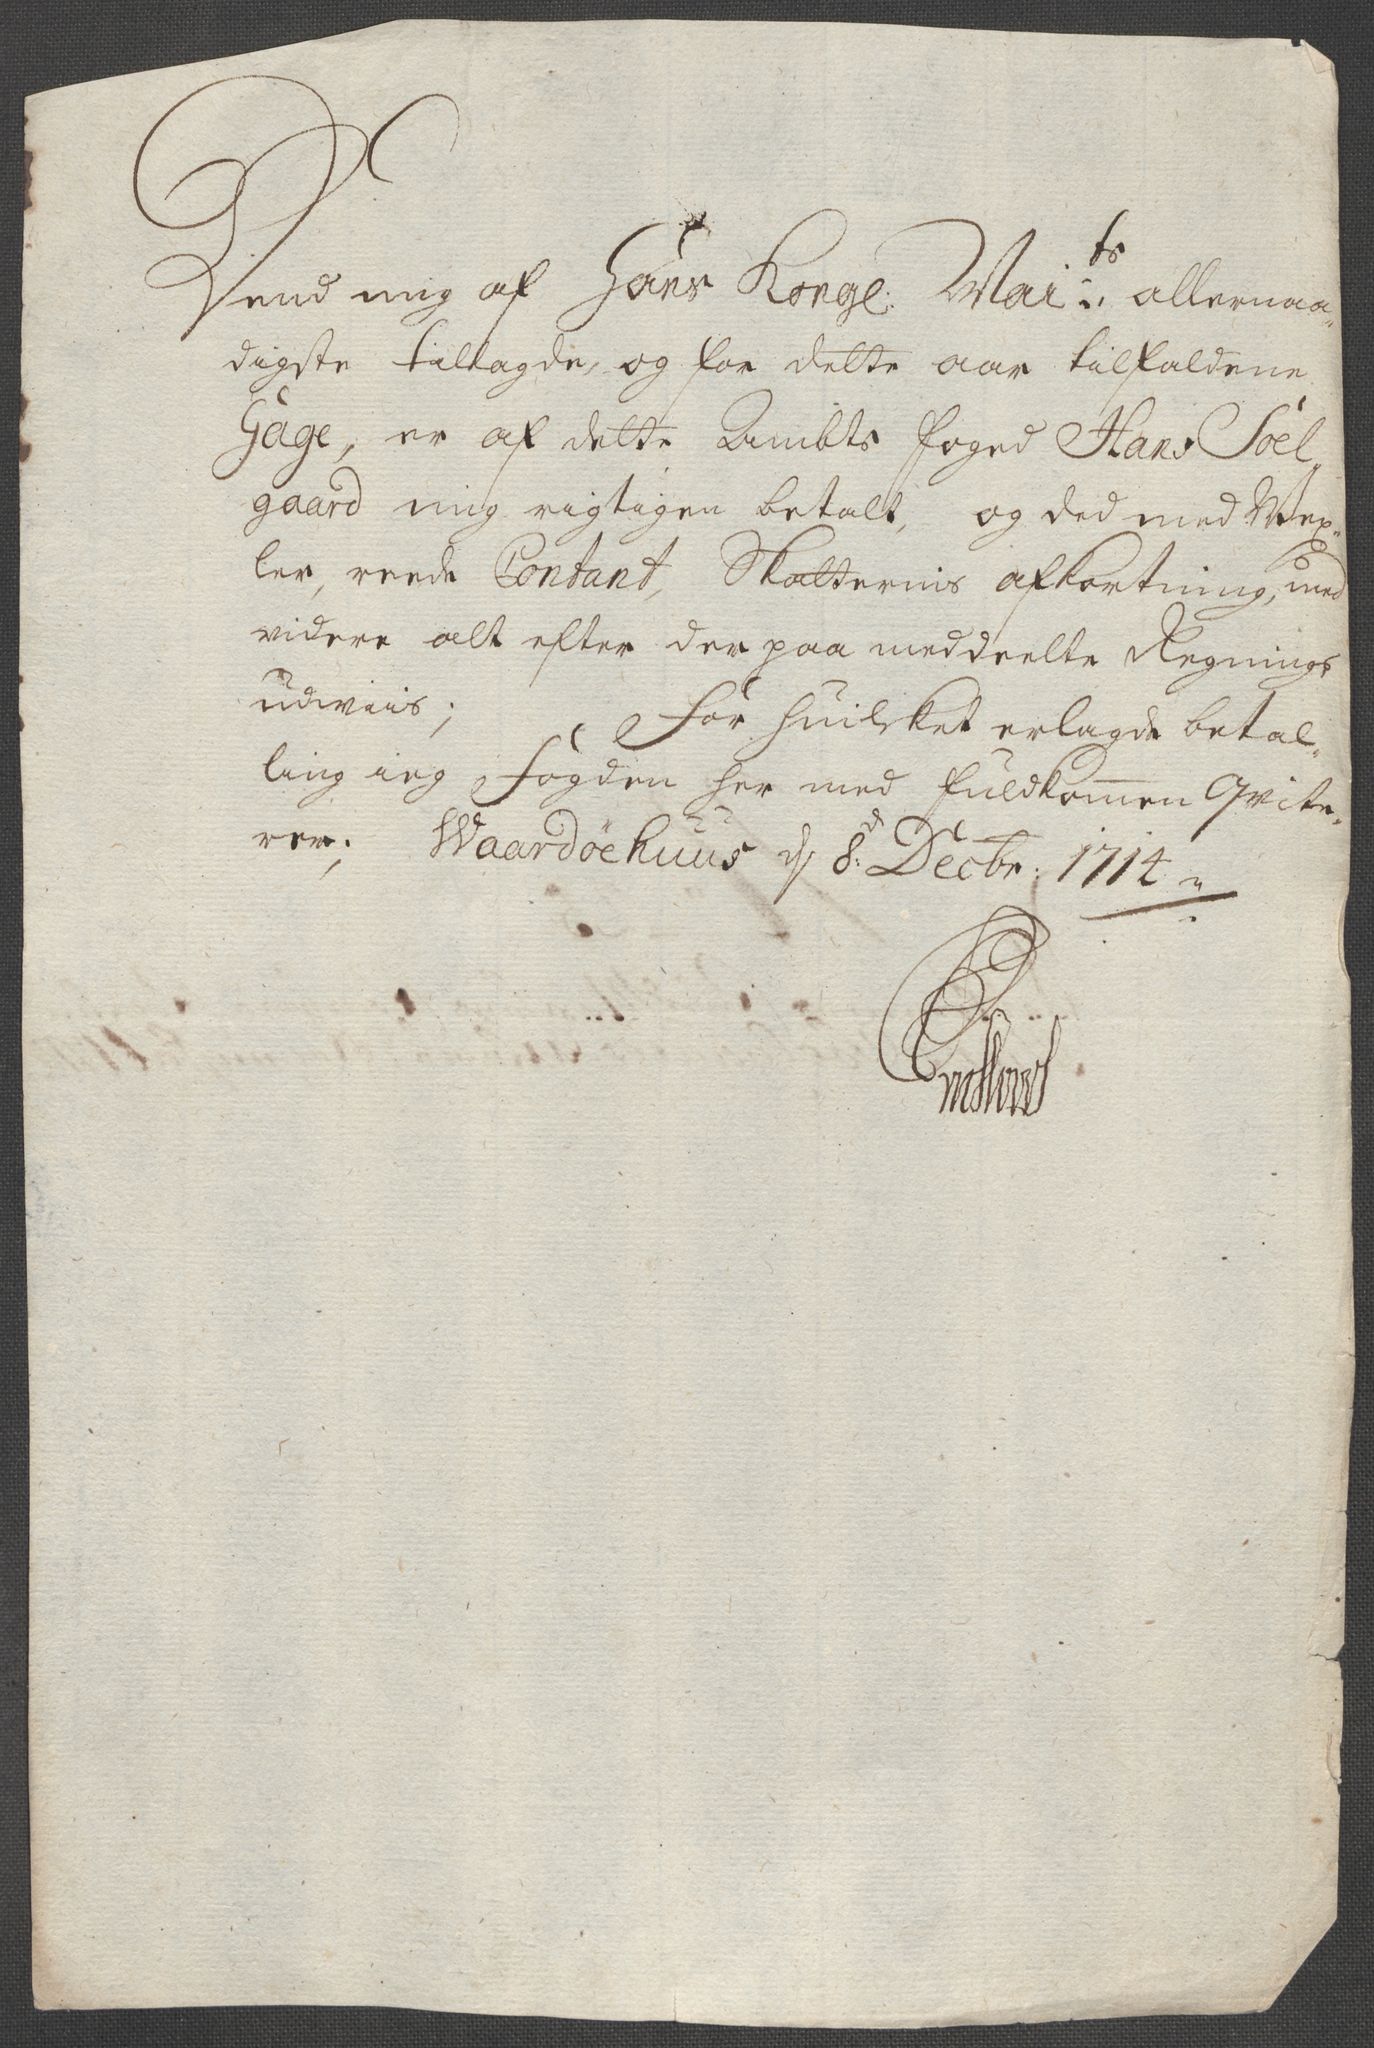 Dend mig af Hans Kongl: Mai:ts allernaa-
digste tillagde, og for dette aar tilfaldene
Gage, er af dette Ambts foged Hans Söel-
gaard mig rigtigen betalt, og ded med Wex-
ler, reede Contant, Skatternis afkortning, med
videre alt efter der paa meddeelte Regnings
udwiis; For huilcket erlagde betal-
ling ieg Fogden her med fuldkommen Qvite-
rer; Waardöehuus d 8:d Decbr: 1714